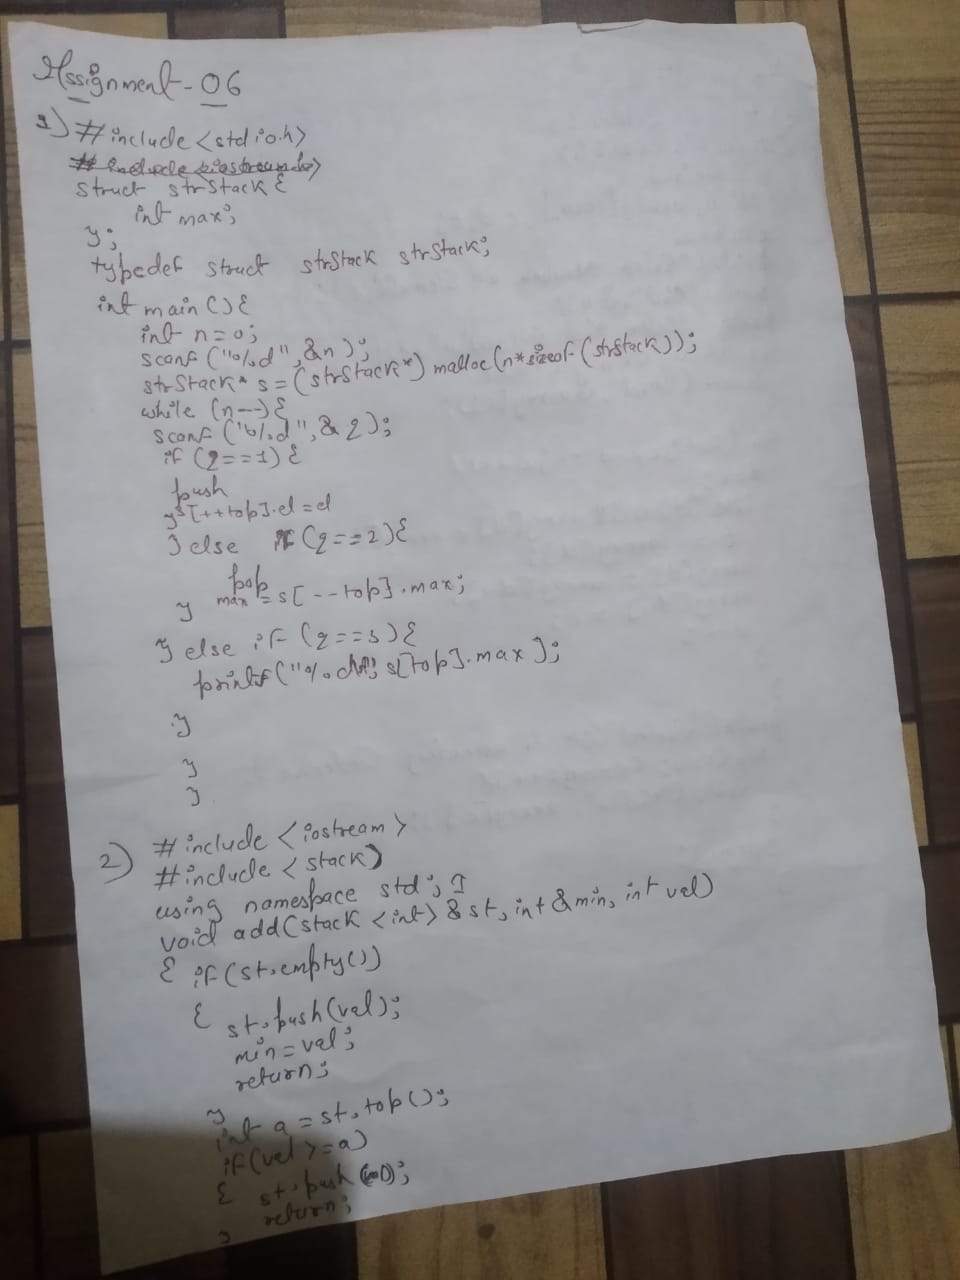 Assignment-06
1) #include <stdio.h>
struct strStack {
int max;
};
typedef struct strStack strStack;
int main () {
int n=0;
scanf ("%d", &n);
strStack* s = (strStack*) malloc (n*sizeof (strStack));
while (n--) {
scanf ("%d", &q);
if (q==1) {
push
s[++top].el = el
} else if (q==2) {
pop
max = s[--top].max;
}
} else if (q==3) {
printf ("%d", s[top].max);
}
}
}
2) #include <iostream>
#include <stack>
using namespace std;
void add (stack <int> & st, int & min, int val)
{ if (st.empty())
{ st.push(val);
min = val;
return;
}
int a = st.top();
if (val >= a)
{ st.push ();
return;
}